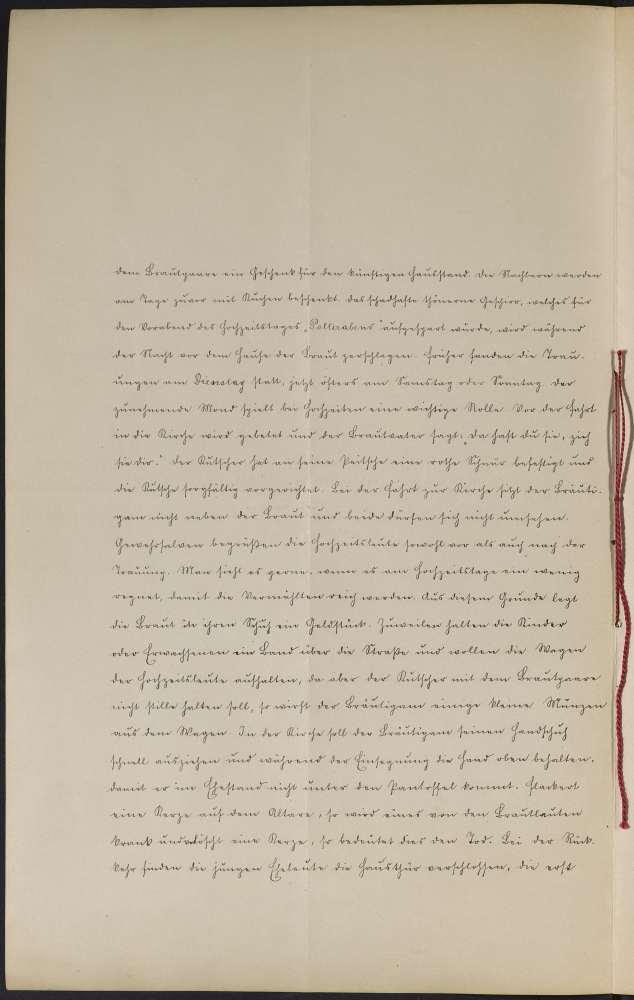 dem Brautpaare ein Geschenk für den künftigen Hausstand. Die Nachbarn werden
am Tage zuvor mit Kuchen beschenkt. Das schadhafte thönerne Geschirr, welches für
den Vorabend des Hochzeitstages „Polterabens" aufgespart wurde, wird während
der Nacht vor dem Hause der Braut zerschlagen. Früher fanden die Trau-
ungen am Dienstag statt, jetzt öfters am Samstag oder Sonntag. Der
zunehmende Mond spielt bei Hochzeiten eine wichtige Rolle. Vor der Fahrt
in die Kirche wird gebetet und der Brautvater sagt: „Da hast du sie, zieh
sie dir." Der Kutscher hat an seine Peitsche eine rothe Schnur befestigt und
die Kutsche sorgfältig vorgerichtet. Bei der Fahrt zur Kirche sitzt der Bräuti-
gam nicht neben der Braut und beide dürfen sich nicht umsehen.
Gewehrsalven begrüßen die Hochzeitsleute sowohl vor als auch nach der
Trauung. Man sieht es gerne, wenn es am Hochzeitstage ein wenig
regnet, damit die Vermählten reich werden. Aus diesem Grunde legt
die Braut in ihren Schuh ein Geldstück. Zuweilen halten die Kinder
oder Erwachsenen ein Band über die Straße und wollen die Wagen
der Hochzeitsleute aufhalten, da aber der Kutscher mit dem Brautpaare
nicht stille halten soll, so wirft der Bräutigam einige kleine Münzen
aus dem Wagen. In der Kirche soll der Bräutigam seinen Handschuh
schnell ausziehen und während der Einsegnung die Hand oben behalten,
damit er im Ehestand nicht unter den Pantoffel kommt. Flackert
eine Kerze auf dem Altare, so wird eines von den Brautleuten
krank und verlöscht eine Kerze, so bedeutet dies den Tod. Bei der Rück-
kehr finden die jungen Eheleute die Hausthür verschlossen, die erst